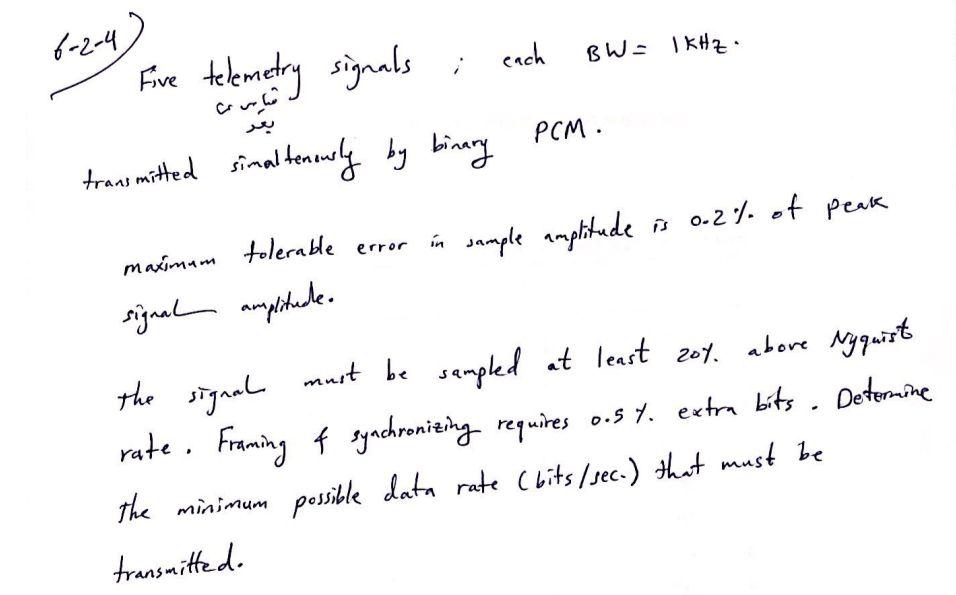 6-2-4)
Five telemetry signals ; each BW = 1 KHz.
بعد
transmitted simaltenously by binary PCM.
maximum tolerable error in sample amplitude is 0.2% of peak
signal amplitude.
the signal must be sampled at least 20% above Nyquist
rate. Framing & synchronizing requires 0.5% extra bits. Determine
the minimum possible data rate (bits/sec.) that must be
transmitted.